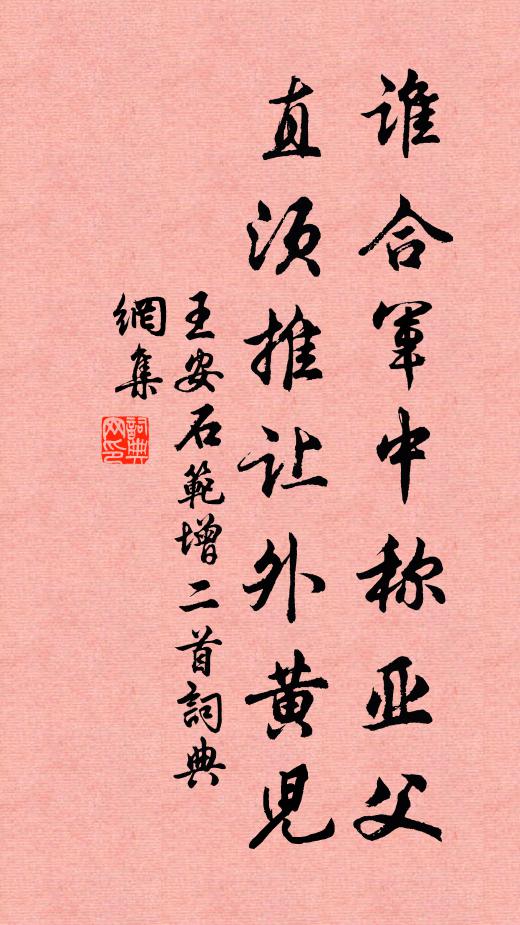 谁合军中称亚父
直须推让外黄児
王安石範增二首詞典
網集
詞典网印